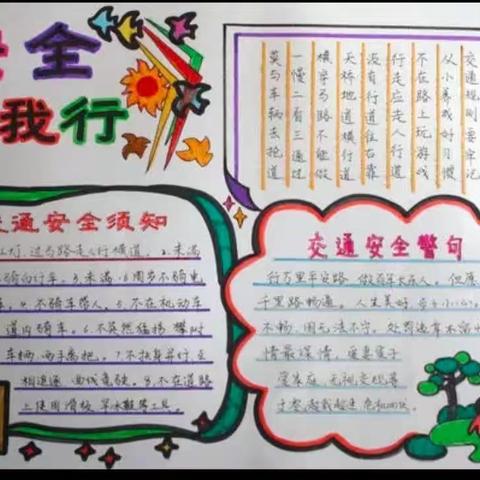 全
我行
交通规则要牢记
从小养成好习惯
不在路上玩游戏
行走应走人行道
没有行道往右靠
天桥地道横行道
横穿马路不能做
一慢二看三通过
莫与车辆去抢道
交通安全须知
红灯,过马路走人行横道,2.未满
骑自行车。3.未满16周岁不骑电
4.不骑车带人。5.不在机动车
道内骑车。6.不突然猛拐
车辆,两手离把。7.不扶身并行,互
相追逐,曲线竞驶。8.不在道路
上使用滑板,旱冰鞋等工具。
交通安全警句
行万里平安路,做百年长乐人。但愿
千里路畅通。人生美好,步步小心。
不畅,因无法不守。处罚
情最深情,爱妻爱子
爱家庭,无视交规等
于零,超载超速,危机四伏